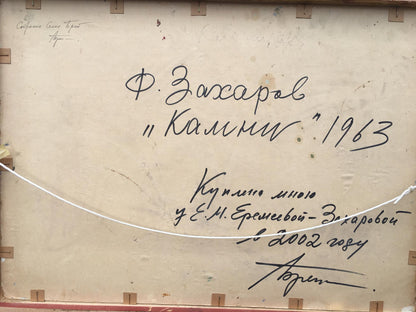 Ф. Захаров
„Камни". 1963
Куплено мною
у Е.М. Еремеевой-Захаровой
в 2002 году